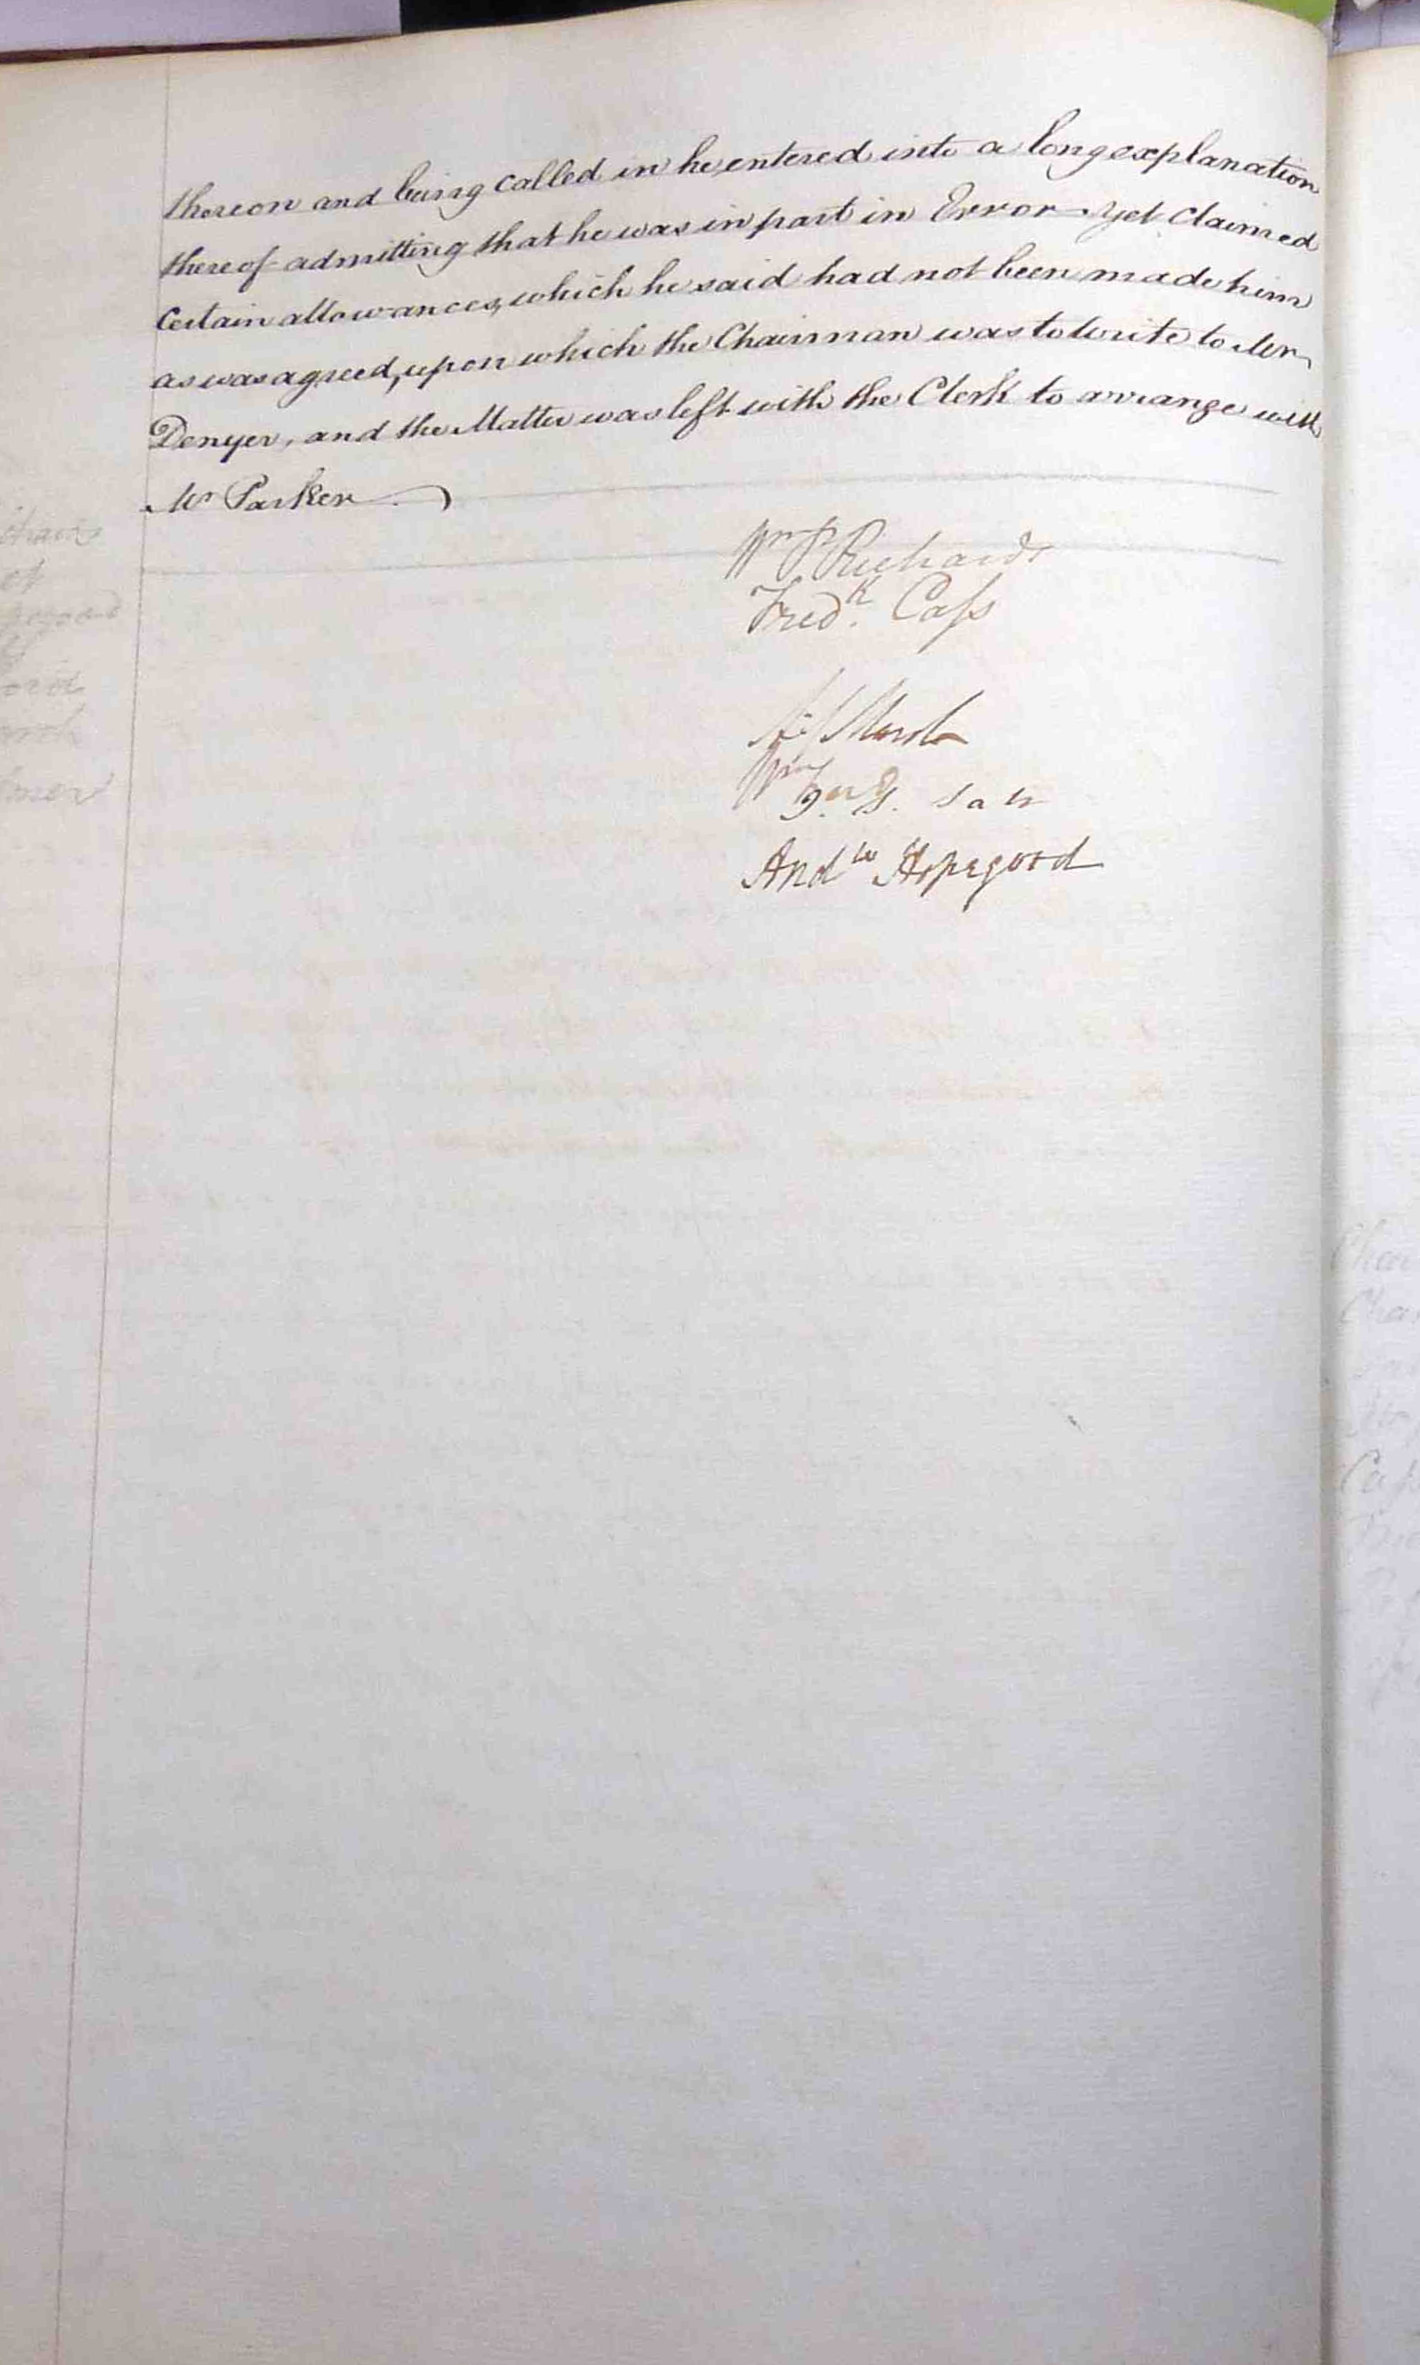 thereon and being called in he entered into a long explanation
thereof admitting that he was in part in Error yet claimed
certain allowances, which he said had not been made him
as was agreed, upon which the Chairman was to write to Mr
Denyer, and the Matter was left with the Clerk to arrange with
Mr Parker
Wm P Richards
Fredk. Cass
Andw Hopegood